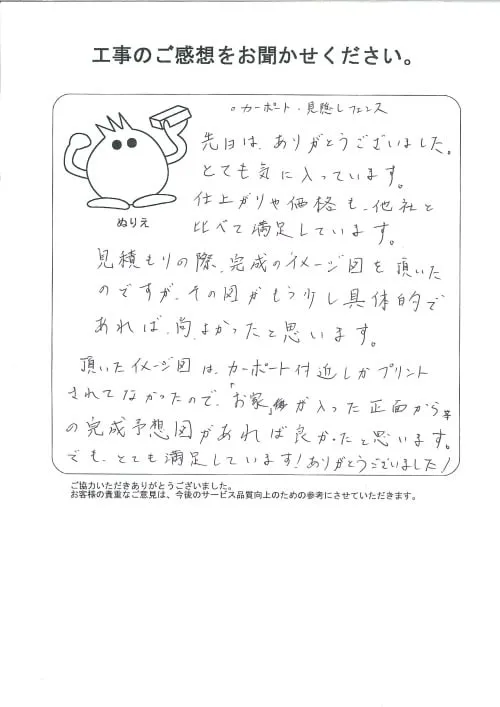 工事のご感想をお聞かせください。
○カーポート・見隠しフェンス
先日は、ありがとうございました。
とても気に入っています。
仕上がりや価格も、他社と
比べて満足しています。
ぬりえ
見積もりの際、完成のイメージ図を頂いた
のですが、その図がもう少し具体的で
あれば、尚、よかったと思います。
頂いたイメージ図は、カーポート付近しかプリント
されてなかったので、「お家」が入った正面から
の完成予想図があれば良かったと思います。
でも、とても満足しています!ありがとうございました!
ご協力いただきありがとうございました。
お客様の貴重なご意見は、今後のサービス品質向上のための参考にさせていただきます。